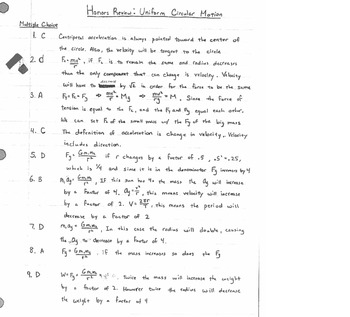 Honors Review: Uniform Circular Motion
Multiple Choice
1. C Centripetal acceleration is always pointed toward the center of
the circle. Also, the velocity will be tangent to the circle
2. d Fc = mv²/r, if Fc is to remain the same and radius decreases
then the only component that can change is velocity. Velocity
will have to decrease by √2 in order for the force to be the same
3. A Since the force of
tension is equal to the Fc, and the Fc and Fg equal each other,
We can set Fc of the small mass w/ the Fg of the big mass
4. C The definition of acceleration is change in velocity. Velocity
includes direction.
5. D Fg = Gm₁m₂/r² if r changes by a factor of .5, .5² = .25,
which is ¼ and since it is in the denominator Fg increases by 4
6. B If this sun has 4x the mass the ag will increase
by a factor of 4. ag = v²/r, this means velocity will increase
by a factor of 2. V = 2πr/T, this means the period will
decrease by a factor of 2
7. D In this case the radius will double, causing
the ag to decrease by a factor of 4.
8. A Fg = Gm₁m₂/r². if the mass increases so does the Fg
9. D twice the mass will increase the weight
by a factor of 2. However twice the radius will decrease
the weight by a factor of 4